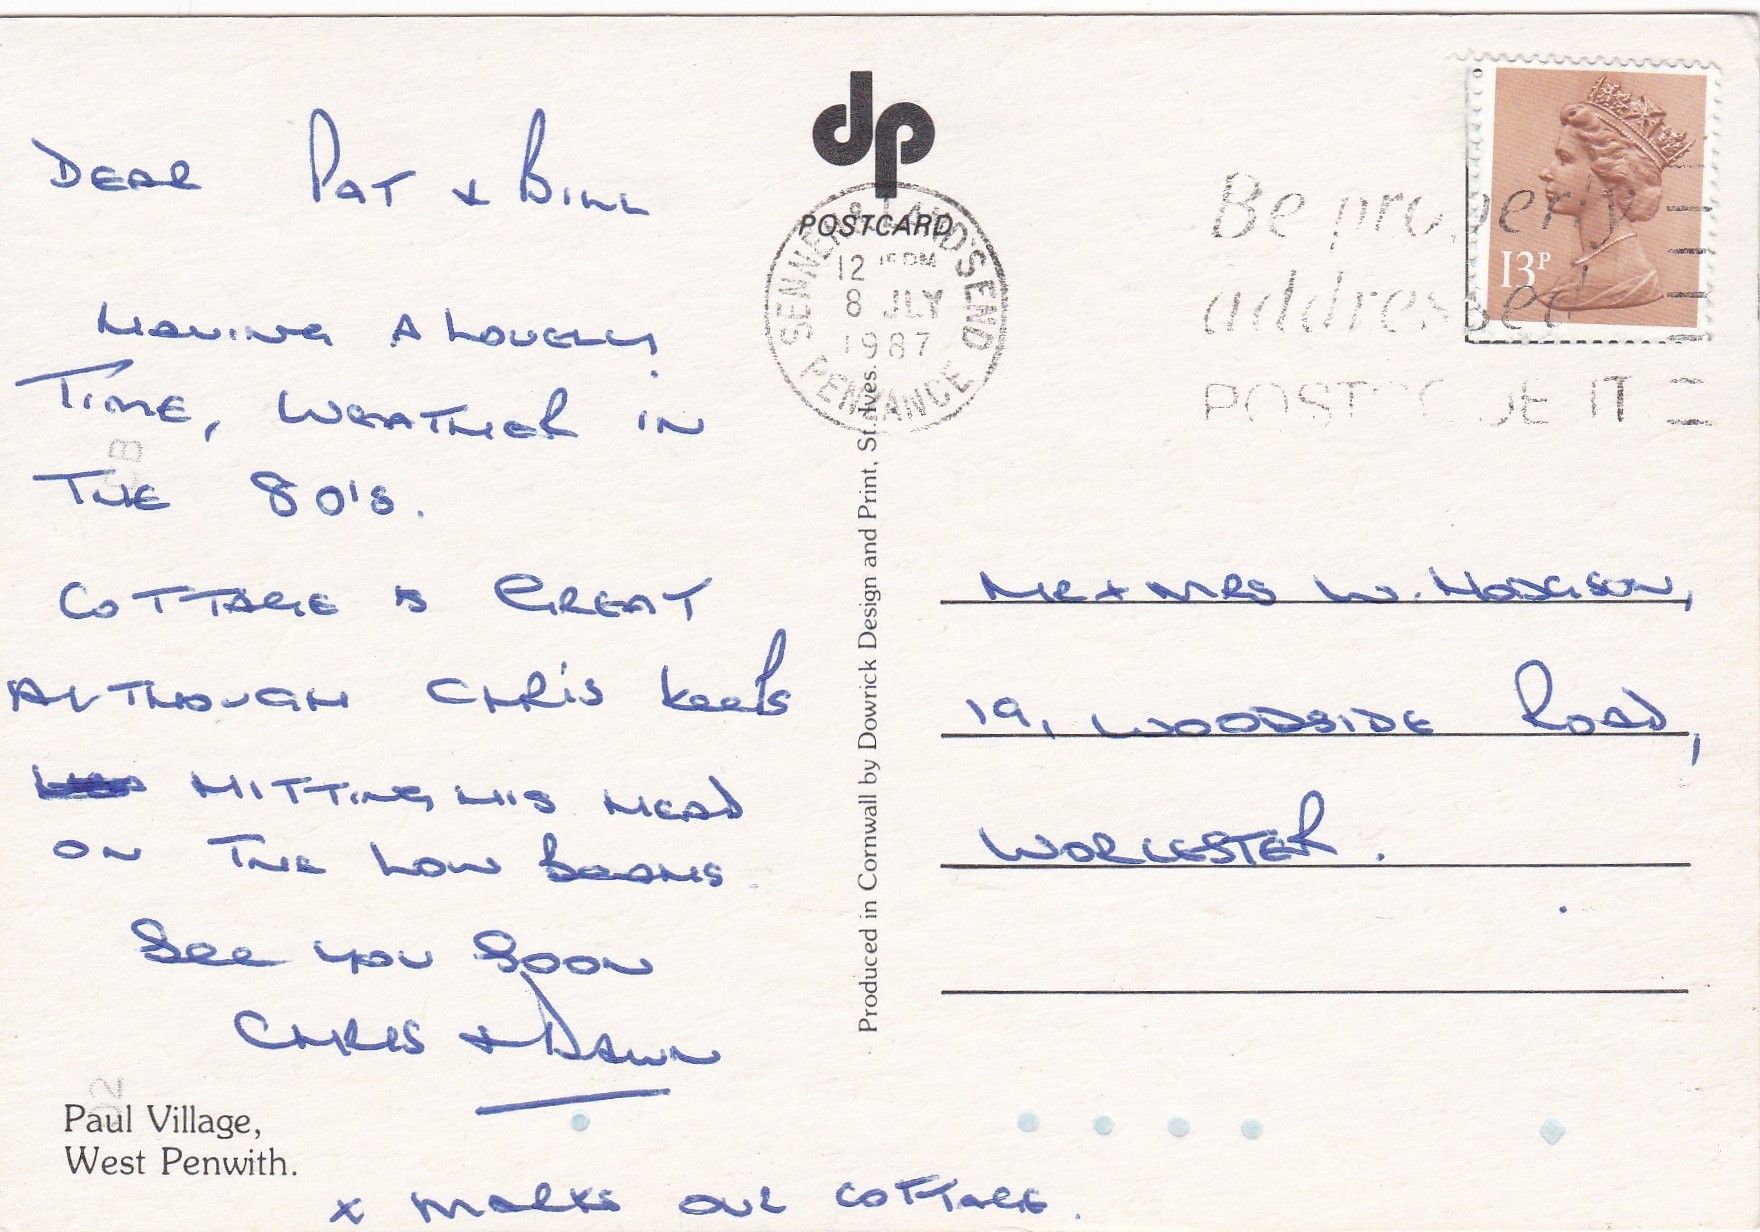 DEAR PAT & BILL
HAVING A LOVELY
TIME, WEATHER IN
THE 80'S.
COTTAGE IS GREAT
ALTHOUGH CHRIS KEEPS
HITTING HIS HEAD
ON THE LOW BEAMS.
SEE YOU SOON
CHRIS & DAWN
Paul Village,
West Penwith.
X MARKS OUR COTTAGE.
dp
POSTCARD
SENNEN & LAND'S END
12 15PM
8 JLY
1987
PENZANCE
Produced in Cornwall by Dowrick Design and Print, St. Ives.
Be properly
addressed
POSTCODE IT
13P
MR & MRS W. HODGSON,
19, WOODSIDE ROAD,
WORCESTER.